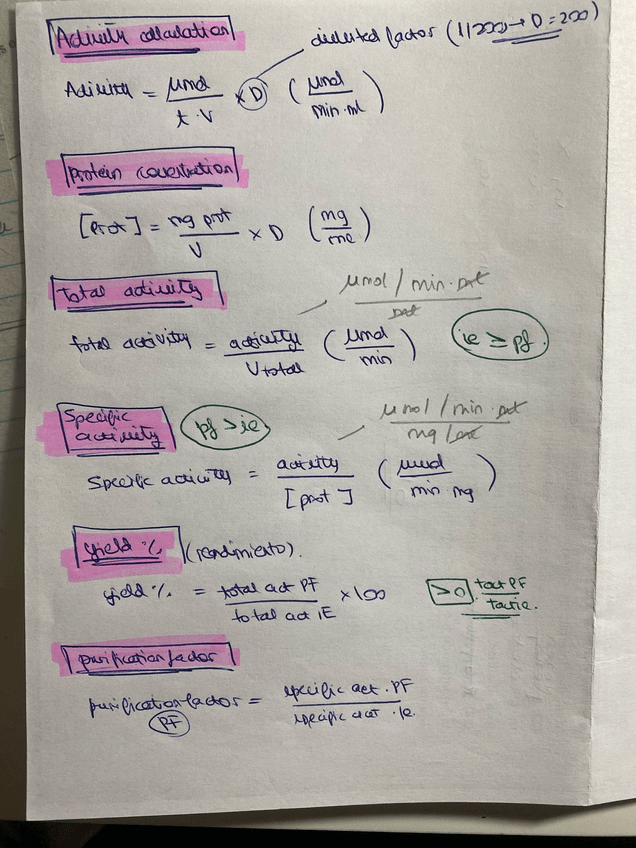 Activity calculation
diluted factor (1/200 → D = 200)
Activity = μmol / t · V × D (μmol / min · ml)
Protein concentration
[Prot] = mg prot / V × D (mg / ml)
Total activity
μmol / min · ml / ml
total activity = activity / V total (μmol / min)
ie ≥ pf
Specific activity
pf > ie
μmol / min · ml / mg / ml
Specific activity = activity / [prot] (μmol / min mg)
yield % (rendimiento).
yield % = total act PF / total act iE × 100
> 0 tact PF / tact ie.
purification factor
purification factor = specific act . PF / specific act . ie.
PF